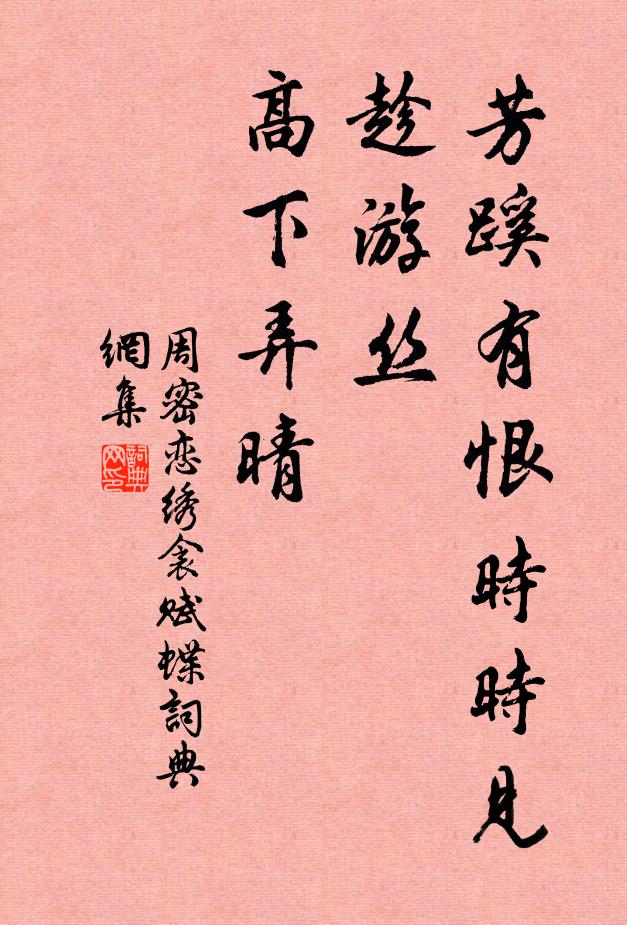 芳蹊有恨時時見
趁游丝
高下弄晴
周密恋绣衾赋蝶詞典
網集
詞典
网印